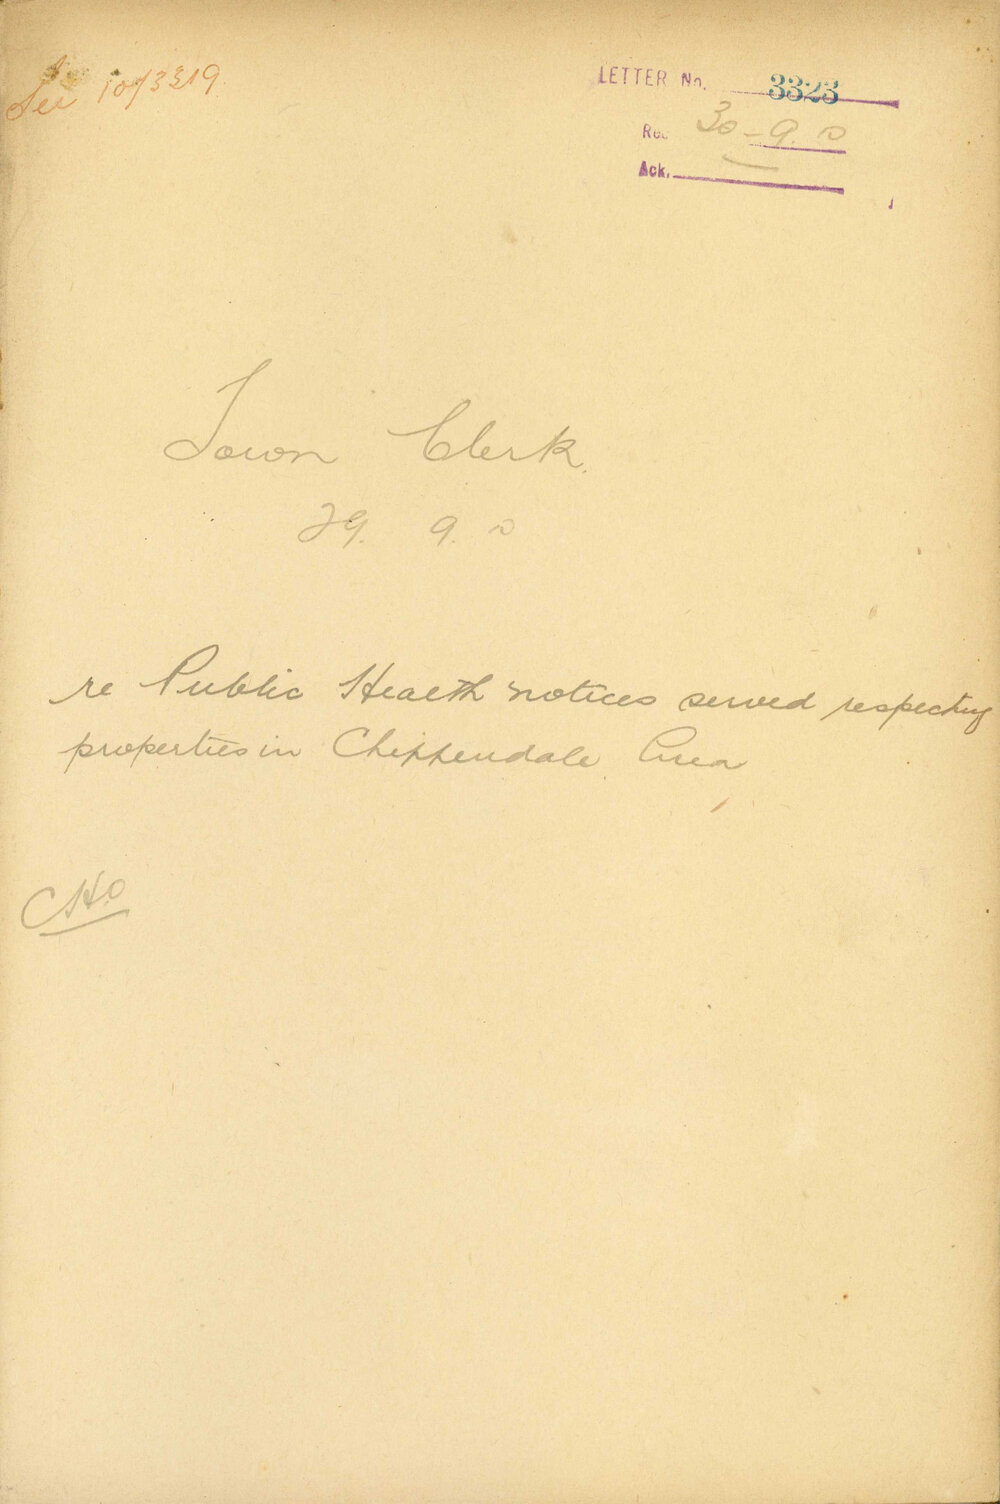 See 10/3319
LETTER No. 3323
Rec. 30-9.10
Ack.
Town Clerk.
29. 9. 10
re Public Health notices served respecting
properties in Chippendale Area
CHO